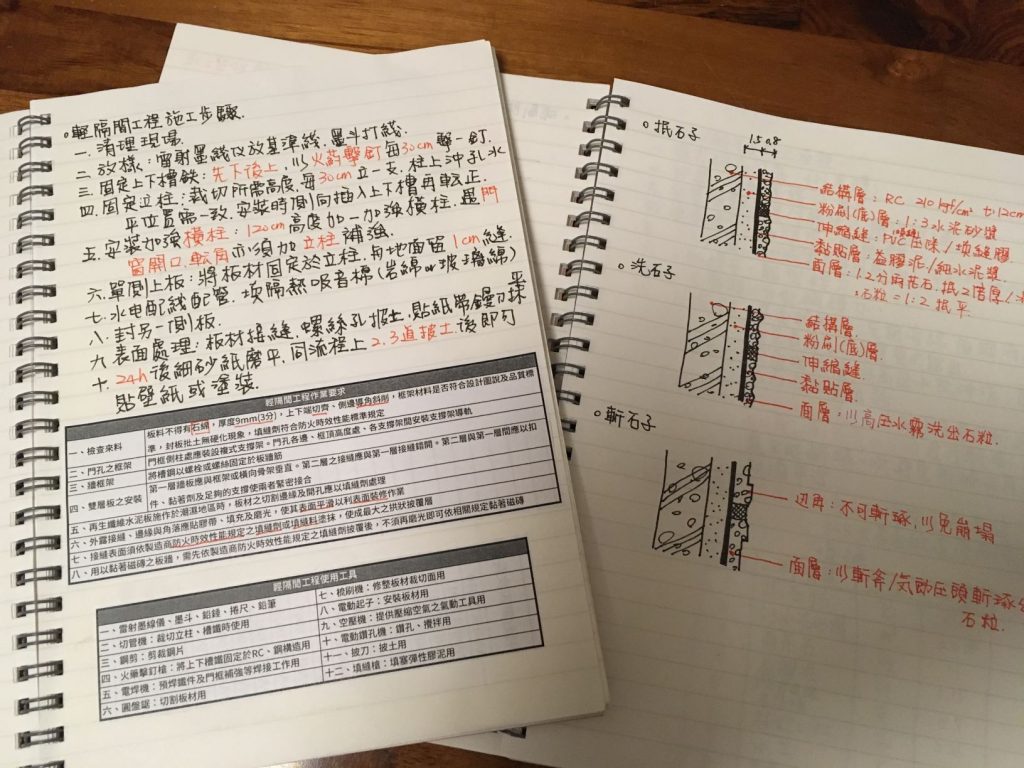 輕隔間工程施工步驟.
一. 清理現場.
二. 放樣:雷射墨線儀放基準線、墨斗打線.
三. 固定上下槽鐵:先下後上,以火葯擊釘每30cm擊一釘.
四. 固定立柱:裁切所需高度,每30cm立一支,柱上沖孔水
平位置需一致,安裝時側向插入上下槽再転正.
五. 安裝加強橫柱:120cm高度加一加強橫柱,遇門
窗開口、転角亦須加立柱補強.
六. 單側上板:將板材固定於立柱,与地面留1cm縫.
七. 水电配線配管、填隔熱吸音棉(岩綿or玻璃綿)
八. 封另一側板.
九. 表面處理:板材接縫、螺絲孔披土,貼紙帶鏝刀抹平
十. 24h後細砂紙磨平,同流程上2.3道披土後即可
貼壁紙或塗裝.
輕隔間工程作業要求
一、檢查來料
板料不得有石綿,厚度9mm(3分),上下端切齊、側邊導角斜削,框架材料是否符合設計圖說及品質標
準,封板批土無硬化現象,填縫劑符合防火時效性能標準規定
二、門孔之框架
門框側柱處應裝設複式支撐架。門孔各邊、框頂高度處、各支撐架間安裝支撐架導軌
三、牆框架
將槽鋼以螺栓或螺絲固定於板牆筋
四、雙層板之安裝
第一層牆板應與框架或橫向骨架垂直。第二層之接縫應與第一層接縫錯開。第二層與第一層間應以扣
件、黏著劑及足夠的支撐使兩者緊密接合
五、再生纖維水泥板施作於潮濕地區時,板材之切割邊緣及開孔應以填縫劑處理
六、外露接縫、邊緣與角落應貼膠帶、填充及磨光,使其表面平滑以利表面裝修作業
七、接縫表面須依製造商防火時效性能規定之填縫劑或填縫料塗抹,使成最大之拱狀披覆層
八、用以黏著磁磚之板牆,需先依製造商防火時效性能規定之填縫劑披覆後,不須再磨光即可依相關規定黏著磁磚
輕隔間工程使用工具
一、雷射墨線儀、墨斗、鉛錘、捲尺、鉛筆
二、切管機:裁切立柱、槽鐵時使用
三、鋼剪:剪裁鋼片
四、火藥擊釘槍:將上下槽鐵固定於RC、鋼構造用
五、電焊機:預焊鐵件及門框補強等焊接工作用
六、圓盤鋸:切割板材用
七、梳刷機:修整板材裁切面用
八、電動起子:安裝板材用
九、空壓機:提供壓縮空氣之氣動工具用
十、電動鑽孔機:鑽孔、攪拌用
十一、披刀:披土用
十二、填縫槍:填塞彈性膠泥用
抿石子
1.5 0.8
結構層:RC 210 kgf/cm² t:12cm
粉刷(底)層:1:3水泥砂漿
伸縮縫:PVC压條/填縫膠
黏貼層:益膠泥/細水泥漿
面層:1.2分南花石 抿2倍厚/
石粒=1:2 抿平
洗石子
結構層.
粉刷(底)層.
伸縮縫.
黏貼層.
面層:以高压水霧洗出石粒.
斬石子
边角:不可斬琢,以免崩塌
面層:以斬斧/気動圧頭斬琢
石粒.